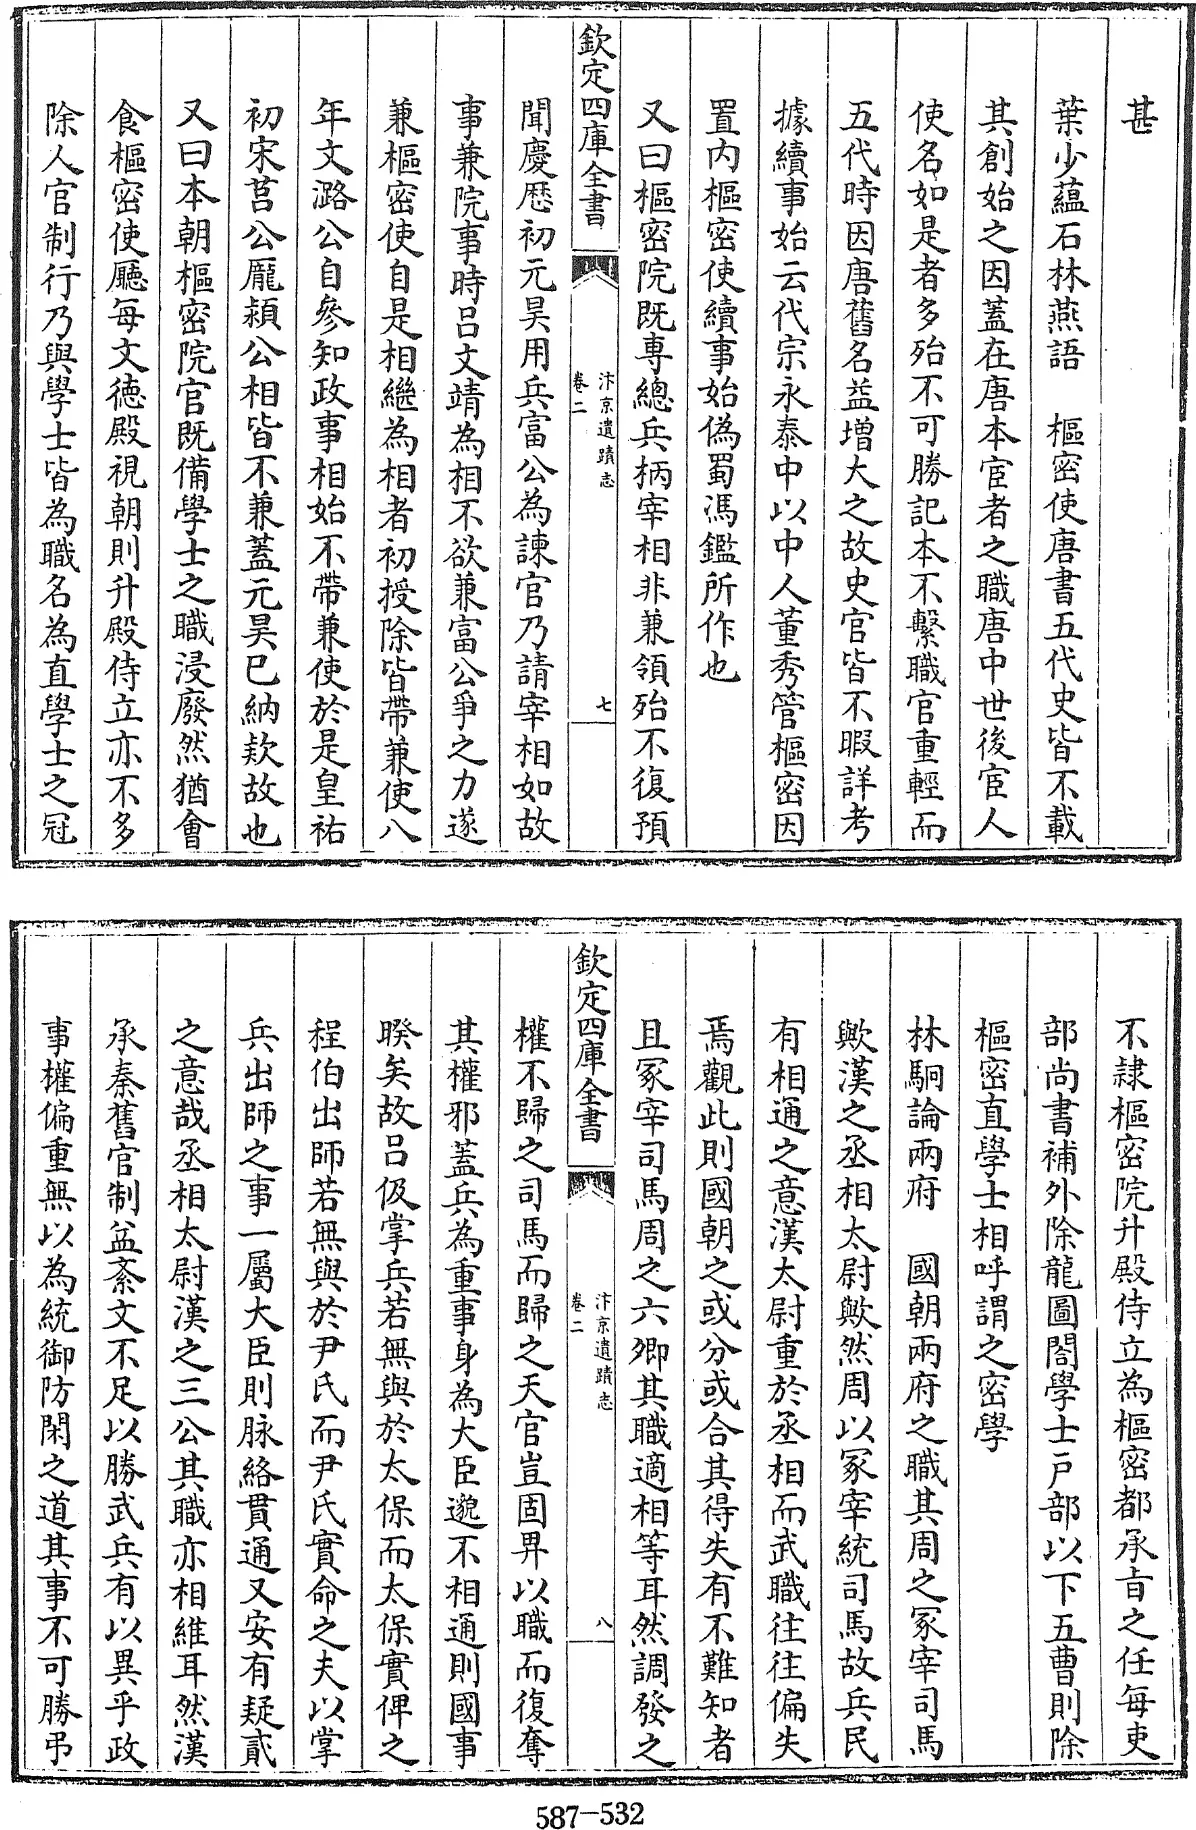 甚
葉少蘊石林燕語　樞密使唐書五代史皆不載
其創始之因蓋在唐本宦者之職唐中世後宦人
使名如是者多殆不可勝記本不繫職官重輕而
五代時因唐舊名益增大之故史官皆不暇詳考
據續事始云代宗永泰中以中人董秀管樞密因
置内樞密使續事始偽蜀馮鑑所作也
又曰樞密院既専總兵柄宰相非兼領殆不復預
欽定四庫全書
汴京遺蹟志
卷二
七
聞慶厯初元昊用兵富公為諫官乃請宰相如故
事兼院事時呂文靖為相不欲兼富公爭之力遂
兼樞密使自是相繼為相者初授除皆帶兼使八
年文潞公自參知政事相始不帶兼使於是皇祐
初宋莒公龎頴公相皆不兼蓋元昊已納欵故也
又曰本朝樞密院官既備學士之職浸廢然猶會
食樞密使廳每文徳殿視朝則升殿侍立亦不多
除人官制行乃與學士皆為職名為直學士之冠
不隷樞密院升殿侍立為樞密都承旨之任每吏
部尚書補外除龍圖閣學士戸部以下五曹則除
樞密直學士相呼謂之密學
林駉論兩府　國朝兩府之職其周之冢宰司馬
歟漢之丞相太尉歟然周以冢宰統司馬故兵民
有相通之意漢太尉重於丞相而武職往往偏失
焉觀此則國朝之或分或合其得失有不難知者
且冢宰司馬周之六卿其職適相等耳然調發之
欽定四庫全書
汴京遺蹟志
卷二
八
權不歸之司馬而歸之天官豈固畀以職而復奪
其權邪蓋兵為重事身為大臣邈不相通則國事
暌矣故呂伋掌兵若無與於太保而太保實俾之
程伯出師若無與於尹氏而尹氏實命之夫以掌
兵出師之事一屬大臣則脉絡貫通又安有疑貳
之意哉丞相太尉漢之三公其職亦相維耳然漢
承秦舊官制盆紊文不足以勝武兵有以異乎政
事權偏重無以為統御防閑之道其事不可勝弔
587-532